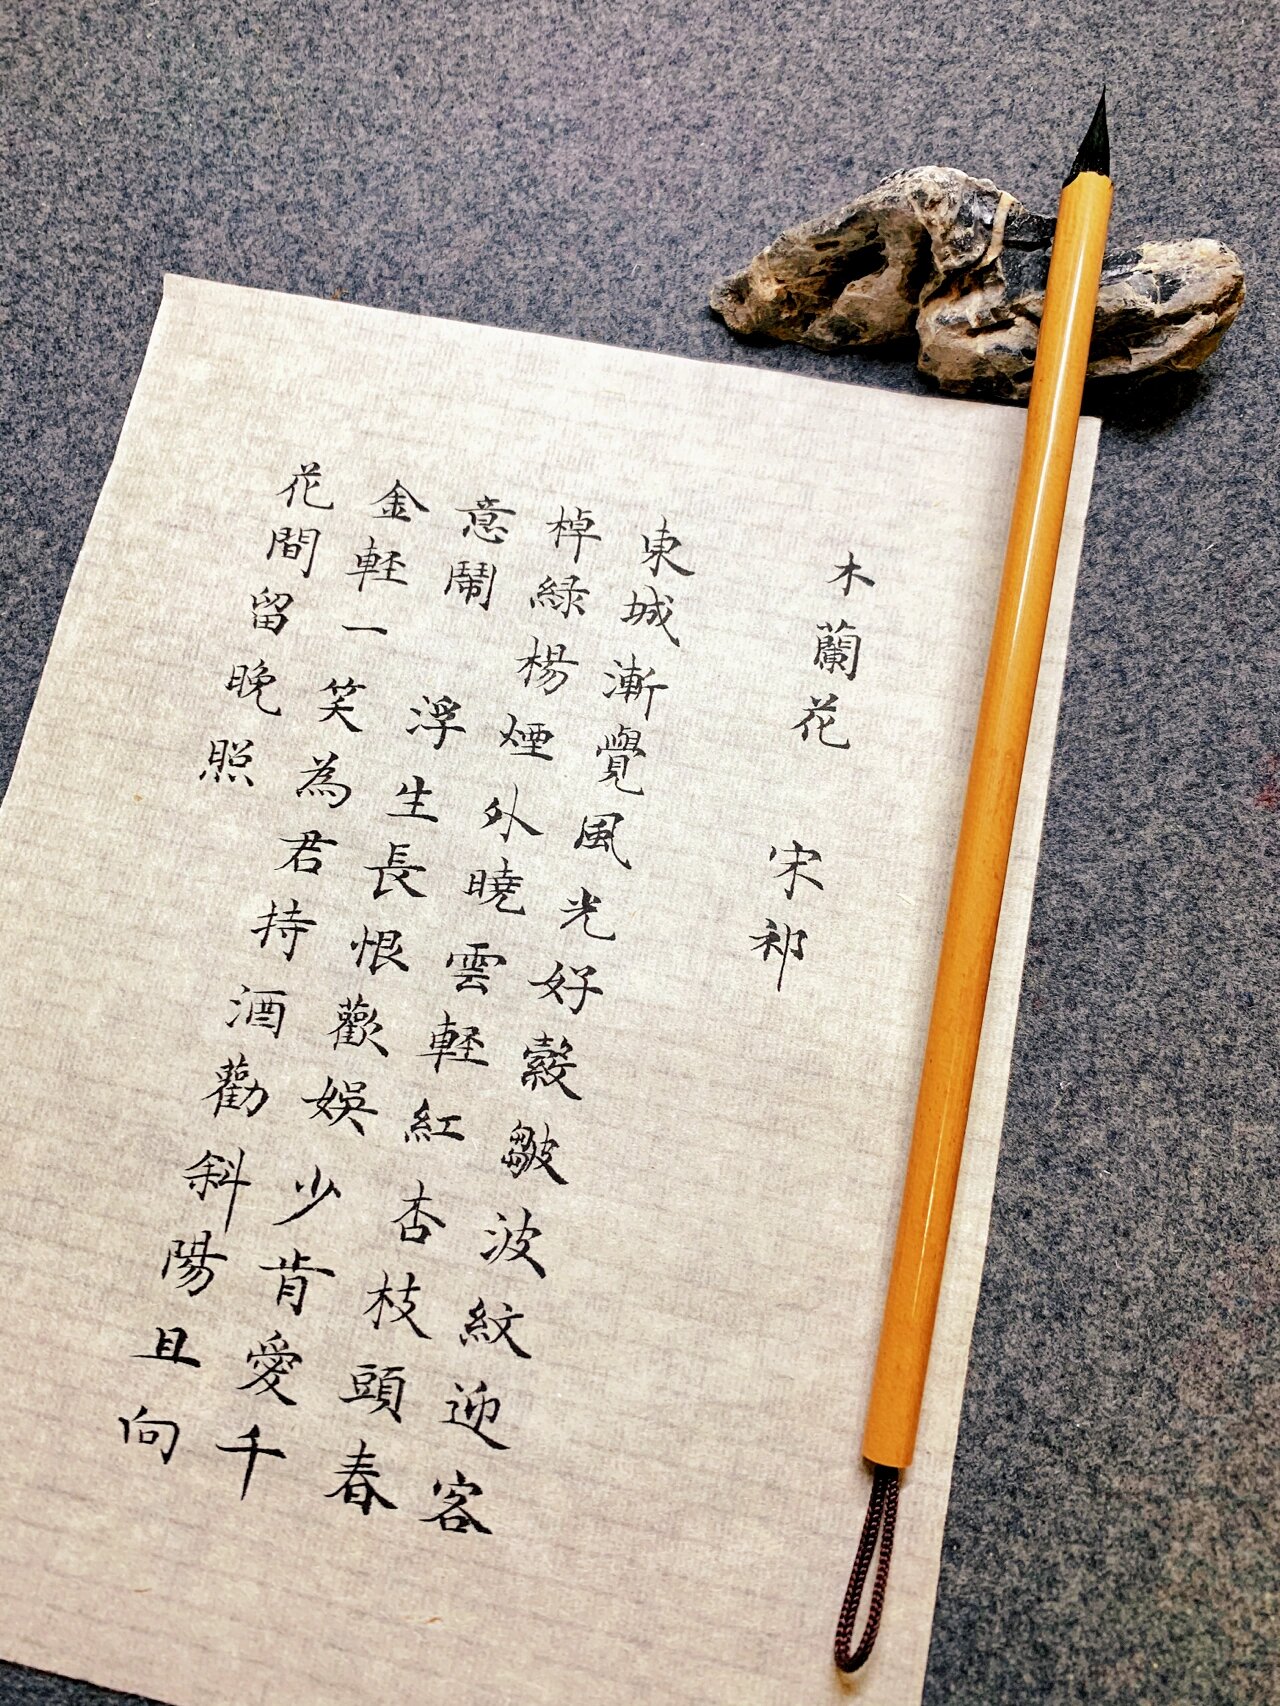 木蘭花 宋祁
東城漸覺風光好縠皺波紋迎客
棹綠楊煙外曉雲軽紅杏枝頭春
意鬧 浮生長恨歡娛少肯愛千
金軽一笑為君持酒勸斜陽且向
花間留晚照